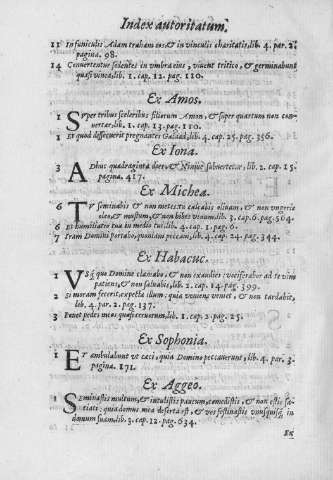 Index autoritatum.
11 In funiculis Adam traham eos, & in vinculis charitatis, lib. 4. par. 2.
pagina. 98.
14 Conuertentur sedentes in vmbra eius, viuent tritico, & germinabunt
quasi vinea, lib. 1. cap. 12. pag. 110.
Ex Amos.
1 Super tribus sceleribus filiorum Amon, & super quartum non con-
uertar, lib. 1. cap. 13. pag. 110.
1 Eo quod dissecuerit pregnantes Galaad, lib. 4. cap. 25. pag. 356.
Ex Iona.
3 Adhuc quadraginta dies, & Niniue subuertetur, lib. 2. cap. 15.
pagina. 417.
Ex Michea.
6 Tu seminabis & non metes: tu calcabis oliuam, & non vngeris
oleo, & mustum, & non bibes vinum, lib. 3. cap. 6. pag. 564.
6 Et humiliatio tua in medio tui, lib. 4. cap. 1. pag. 6.
7 Iram Domini portabo, quoniam peccaui, lib. 4. cap. 24. pag. 344.
Ex Habacuc.
1 Vsq; quo Domine clamabo, & non exaudies: vociferabor ad te vim
patiens, & non saluabis, lib. 2. cap. 14. pag. 399.
2 Si moram fecerit, expecta illum: quia veniens veniet, & non tardabit,
lib. 4. par. 2. pag. 137.
3 Ponet pedes meos quasi ceruorum, lib. 1. cap. 2. pag. 25.
Ex Sophonia.
1 Et ambulabunt vt cæci, quia Domino peccauerunt, lib. 4. par. 3.
pagina. 171.
Ex Aggeo.
1 Seminastis multum, & intulistis paucum, comedistis, & non estis sa-
tiati: quia domus mea deserta est, & vos festinastis vnusquisq; in
domum suam, lib. 3. cap. 12. pag. 634.